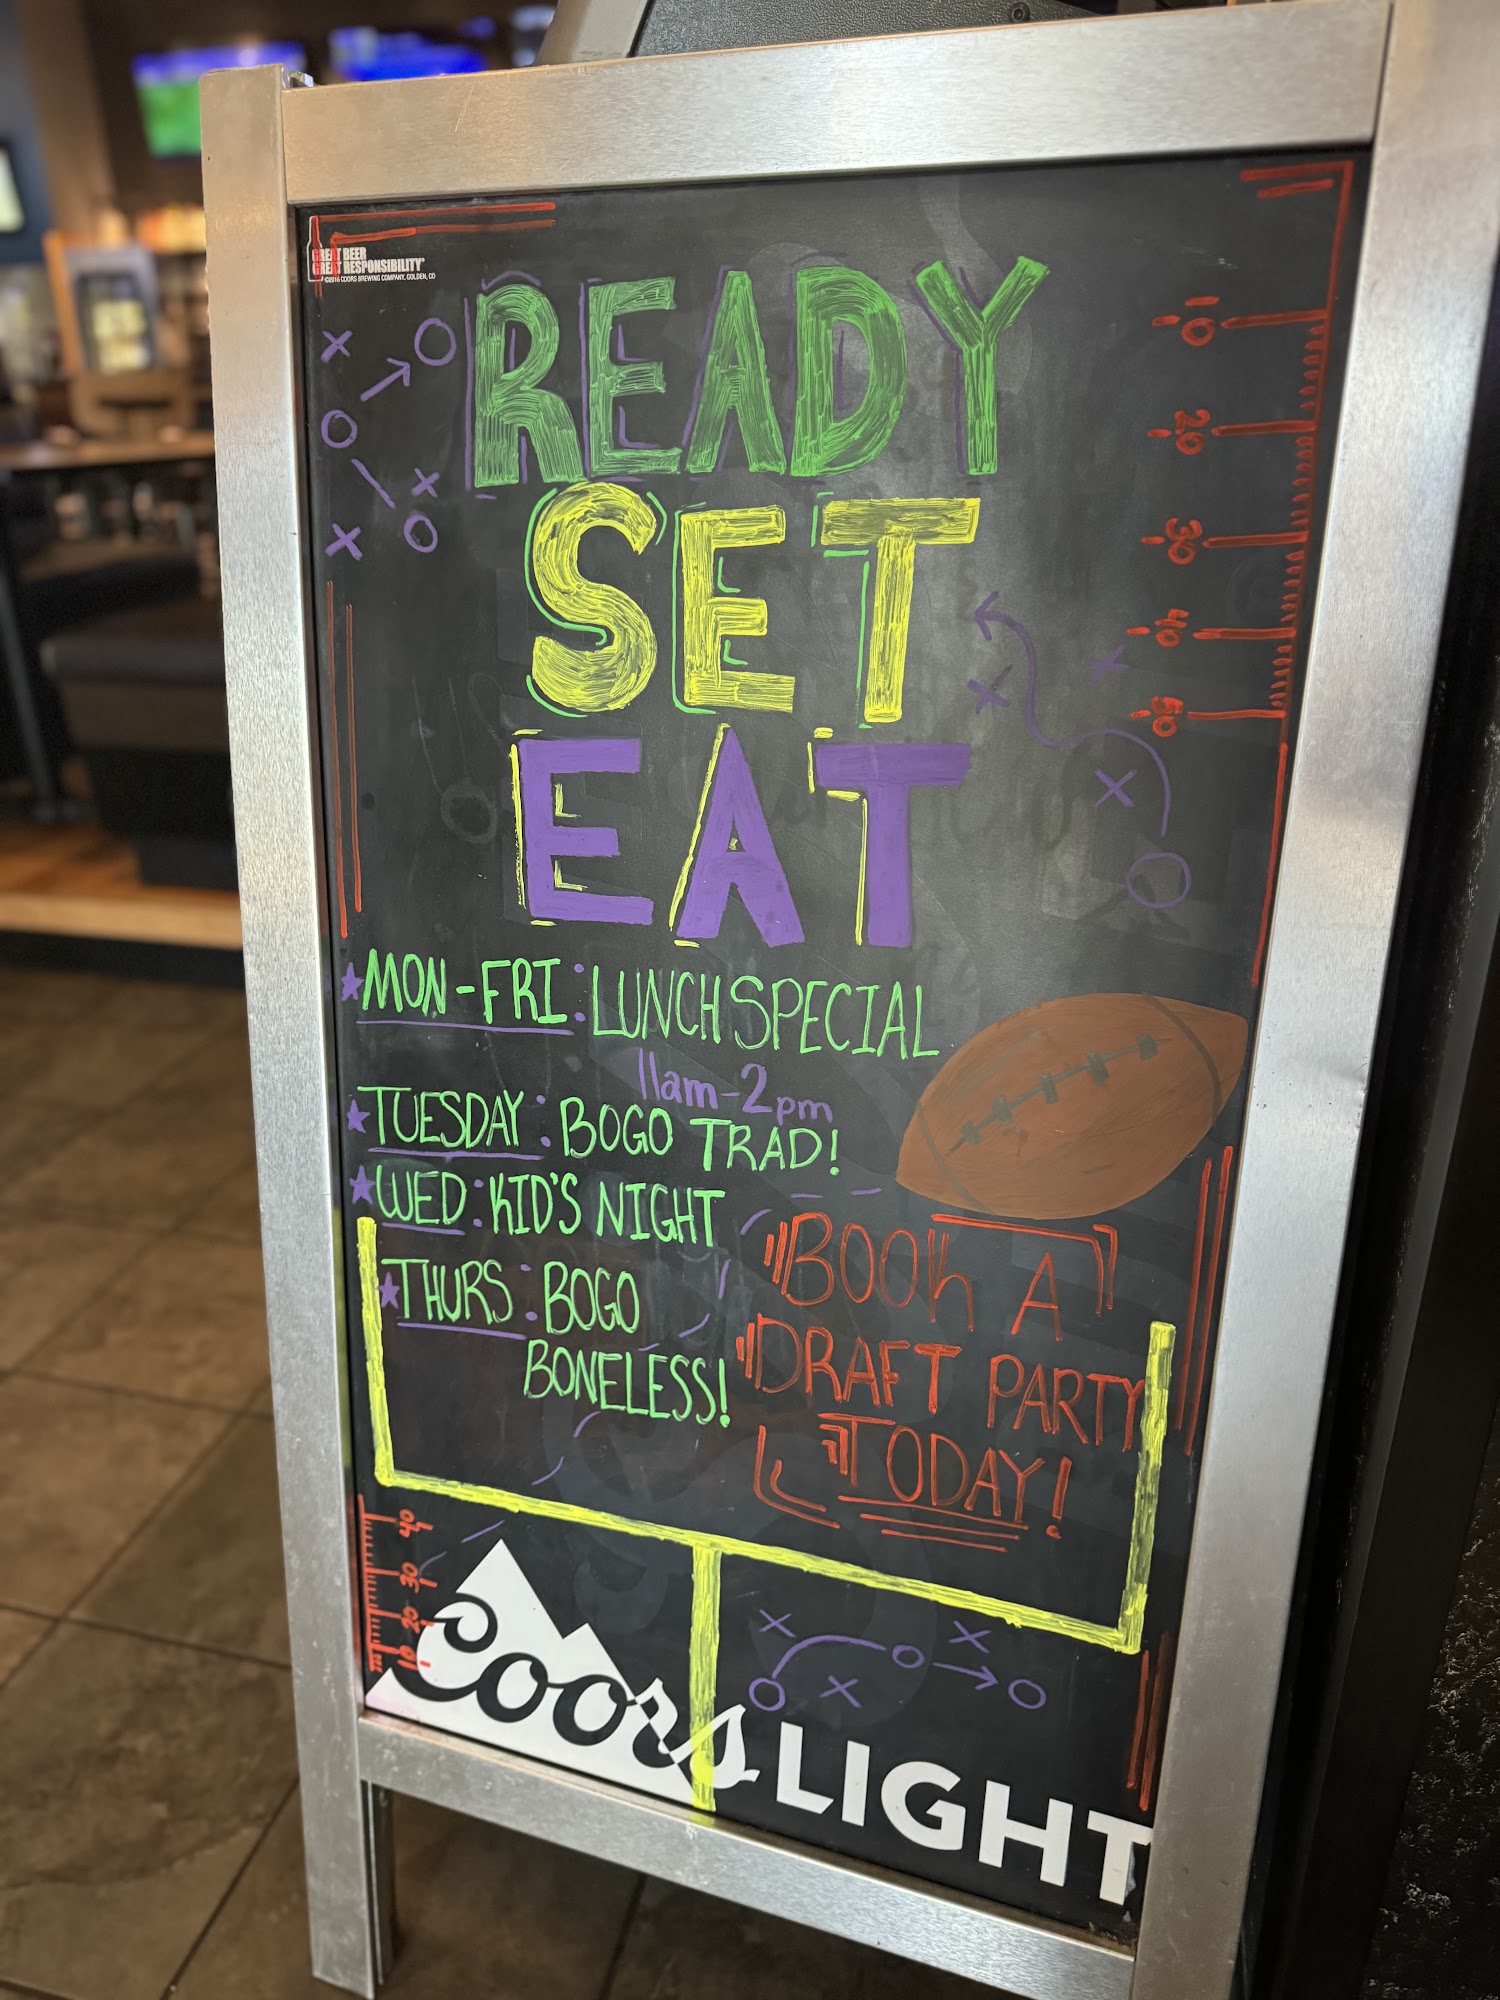 GREAT BEER
GREAT RESPONSIBILITY®
©2016 COORS BREWING COMPANY, GOLDEN, CO
READY
SET
EAT
10
20
30
40
50
MON-FRI: LUNCH SPECIAL
11am-2pm
TUESDAY: BOGO TRAD!
WED: KID'S NIGHT
THURS: BOGO
BONELESS!
BOOK A
DRAFT PARTY
TODAY!
40
30
20
10
Coors LIGHT